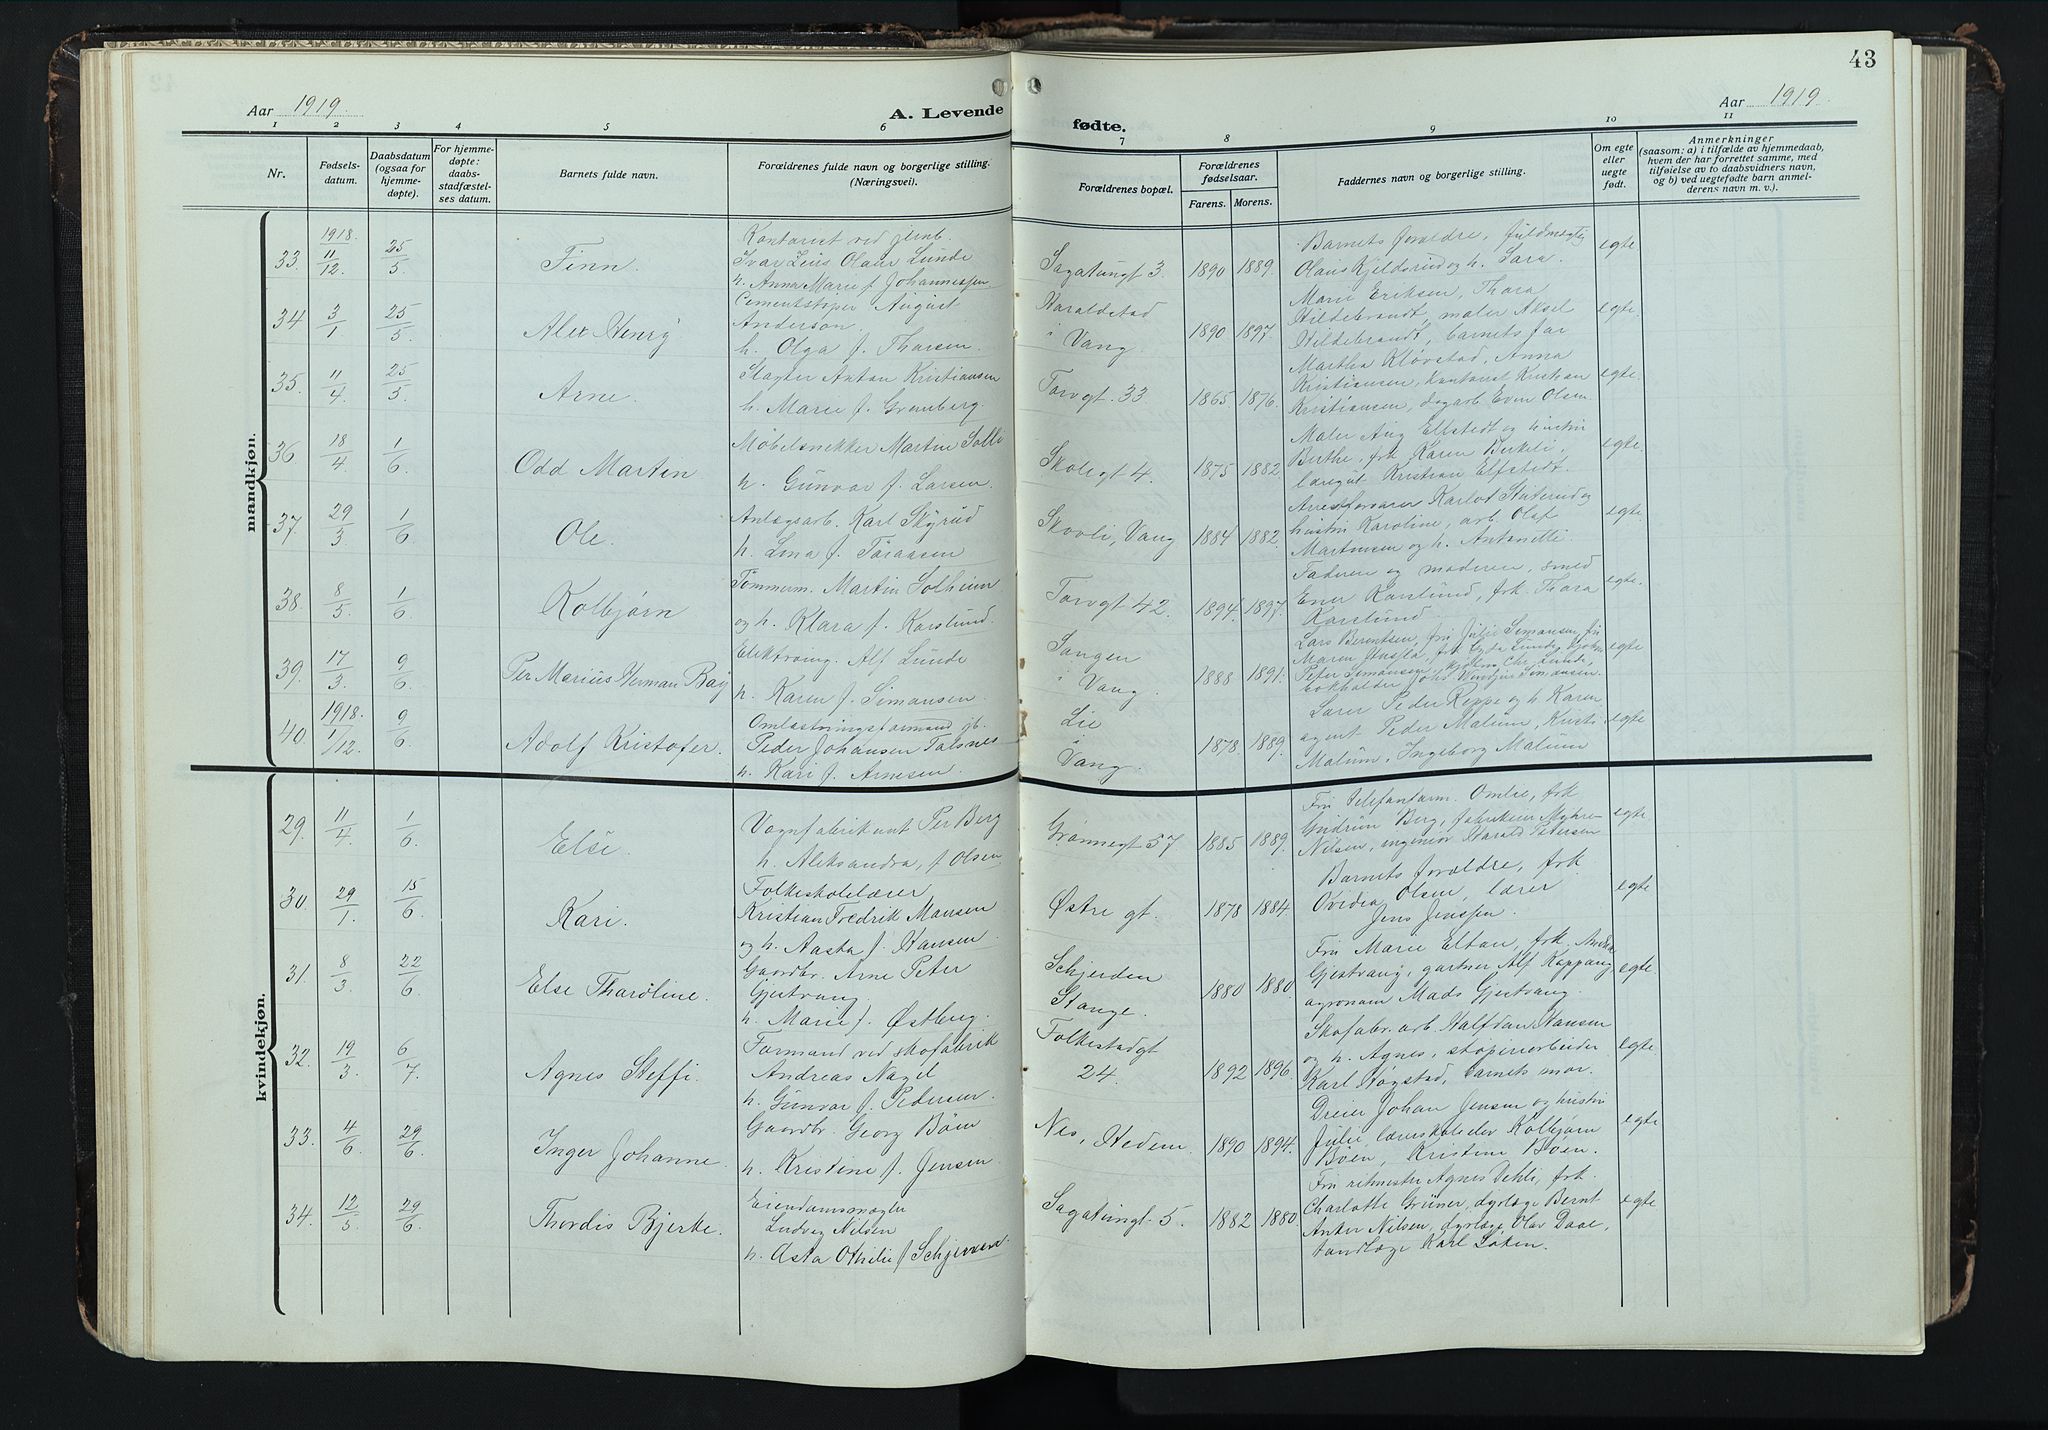 43
Aar 1919. A. Levende fødte. Aar 1919.
1 2 3 4 5 6 7 8 9 10 11
Nr. Fødsels-datum. Daabsdatum (ogsaa for hjemme-døpte). For hjemme-døpte: daabs-stadfæstel-ses datum. Barnets fulde navn. Forældrenes fulde navn og borgerlige stilling. (Næringsvei). Forældrenes bopæl. Forældrenes fødselsaar. Farens. Morens. Faddernes navn og borgerlige stilling. Om egte eller uegte født. Anmerkninger (saasom: a) i tilfælde av hjemmedaab, hvem der har forrettet samme, med tilføielse av to daabsvidners navn, og b) ved uegtefødte barn anmel-derens navn m. v.).
mandkjøn.
33. 1918. 11/12. 25/5 Finn. Kontorist ved jernb.
Ivar Leiv Olaus Lunde
h. Anna Marie f. Johannessen
Sagatungt 3. 1890 1889. Barnets forældre, fuldmegtig
Olaus Kjeldsrud og h. Lara. egte
34 3/1 25/5 Alex Henry Cementstøper August
Anderson.
h. Olga f. Thorsen.
Haraldstad
i Vang. 1890 1897. Marie Eriksen, Thora
Hildebrandt, maler Aksel
Hildebrandt, barnets far egte.
35. 11/4 25/5 Arne. Slagter Anton Kristiansen
h. Marie f. Granberg.
Torvgt. 33 1865 1876. Martha Kløvstad, Anna
Kristiansen, kontorist Kristian
Kristiansen, dagarb. Even Olsen. egte.
36 18/4 1/6 Odd Martin Møbelsnekker Martin Solli
h. Gunvor f. Larsen.
Skolegt 4. 1875 1882. Maler Aug Elfstedt og hustru
Berthe, frk Karen Birkeli,
læregut Kristian Elfstedt. egte.
37. 29/3 1/6 Ole. Anlægsarb. Karl Skyrud
h. Lina f. Toraasen
Skovli, Vang 1884 1882. Arrestforvarer Karlot Stuterud og
hustru Karoline, arb. Olaf
Martinsen og h. Antonette. egte.
38. 8/5. 1/6 Kolbjørn Tømmerm. Martin Solheim
og h. Klara f. Korslund.
Torvgt 42. 1894. 1897. Faderen og moderen, smed
Ener Korslund, frk. Thora
Korslund egte.
39. 17/3. 9/6 Per Marius Herman Bay Elektromg. Alf Lunde
h. Karen f. Simonsen.
Sangen
i Vang. 1888 1891. Lars Berentsen, fru Julie Simonsen, fru
Maren
Peter Simonsen,
Simonsen. egte
40. 1918. 1/12. 9/6 Adolf Kristofer. Omlastningsformand gb.
Peder Johansen Talsnes
h. Kari f. Arnesen.
Lie
i
Vang. 1878. 1889. Lærer Peder Reppe og h. Karen
agent Peder Malum, Kirsti
Malum, Ingeborg Malum egte
kvindekjøn.
29. 11/4 1/6 Else. Vognfabrikant Per Berg
h. Aleksandra, f. Olsen.
Grønnegt 57 1885 1889. Fru telefonform. Omlie, frk
Gudrun Berg, fabrikeier Myhre-
Nilsen, ingeniør Harald Pedersen egte
30. 29/1. 15/6 Kari. Folkeskolelærer
Kristian Fredrik Monsen
og h. Aasta f. Hansen.
Østre gt. 1878 1884. Barnets forældre, frk.
Ovidia Olsen, lærer
Jens Jenssen. egte
31. 8/3. 22/6 Else Tharoline. Gaardbr. Arne Peter
Gjestvang.
h. Marie f. Østberg.
Schjerden
Stange. 1880 1880. Fru Marie Elton, frk.
Gjestvang, gartner Alf Koppang
agronom Mads Gjestvang. egte
32. 19/3. 6/7 Agnes Steffi. Formand ved skofabrik
Andreas Nagel
h. Gunvor f. Pedersen.
Folkestadgt
24. 1892 1896. Skofabr. arb. Halfdan Hansen
og h. Agnes, støperiarbeider
Karl Høgstad, barnets mor. egte
33. 4/6 29/6 Inger Johanne. Gaardbr. Georg Bøen
h. Kristine f. Jensen.
Nes, Hedem. 1890 1894. Dreier Johan Jensen og hustru
Julie, læreskoleelev Kolbjørn
Bøen, Kristine Bøen. egte
34. 12/5. 29/6 Thordis Bjerke. Eiendomsmægler
Ludvig Nilsen
h. Asta Othilie f. Schjerven.
Sagatungt 5. 1882 1880. Fru ritmester Agnes Dehli, frk.
Charlotte Grüner, dyrlæge Bernt
Anker Nilsen, dyrlæge Olav Daae,
tandlæge Karl Løken. egte